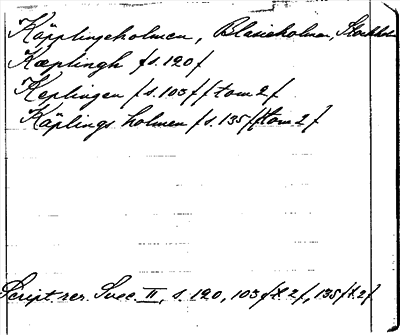 Käpplingeholmen, Blasieholmen, Stockholm
Kæplingh ſ s. 120 ſ
Keplingen ſ s. 103 ſ ſ tom 2 ſ
Käplings holmen ſ s. 135 ſ ſ tom 2 ſ
Script. rer. Svec. II, s. 120, 103 ſ t. 2 ſ, 135 ſ t. 2 ſ